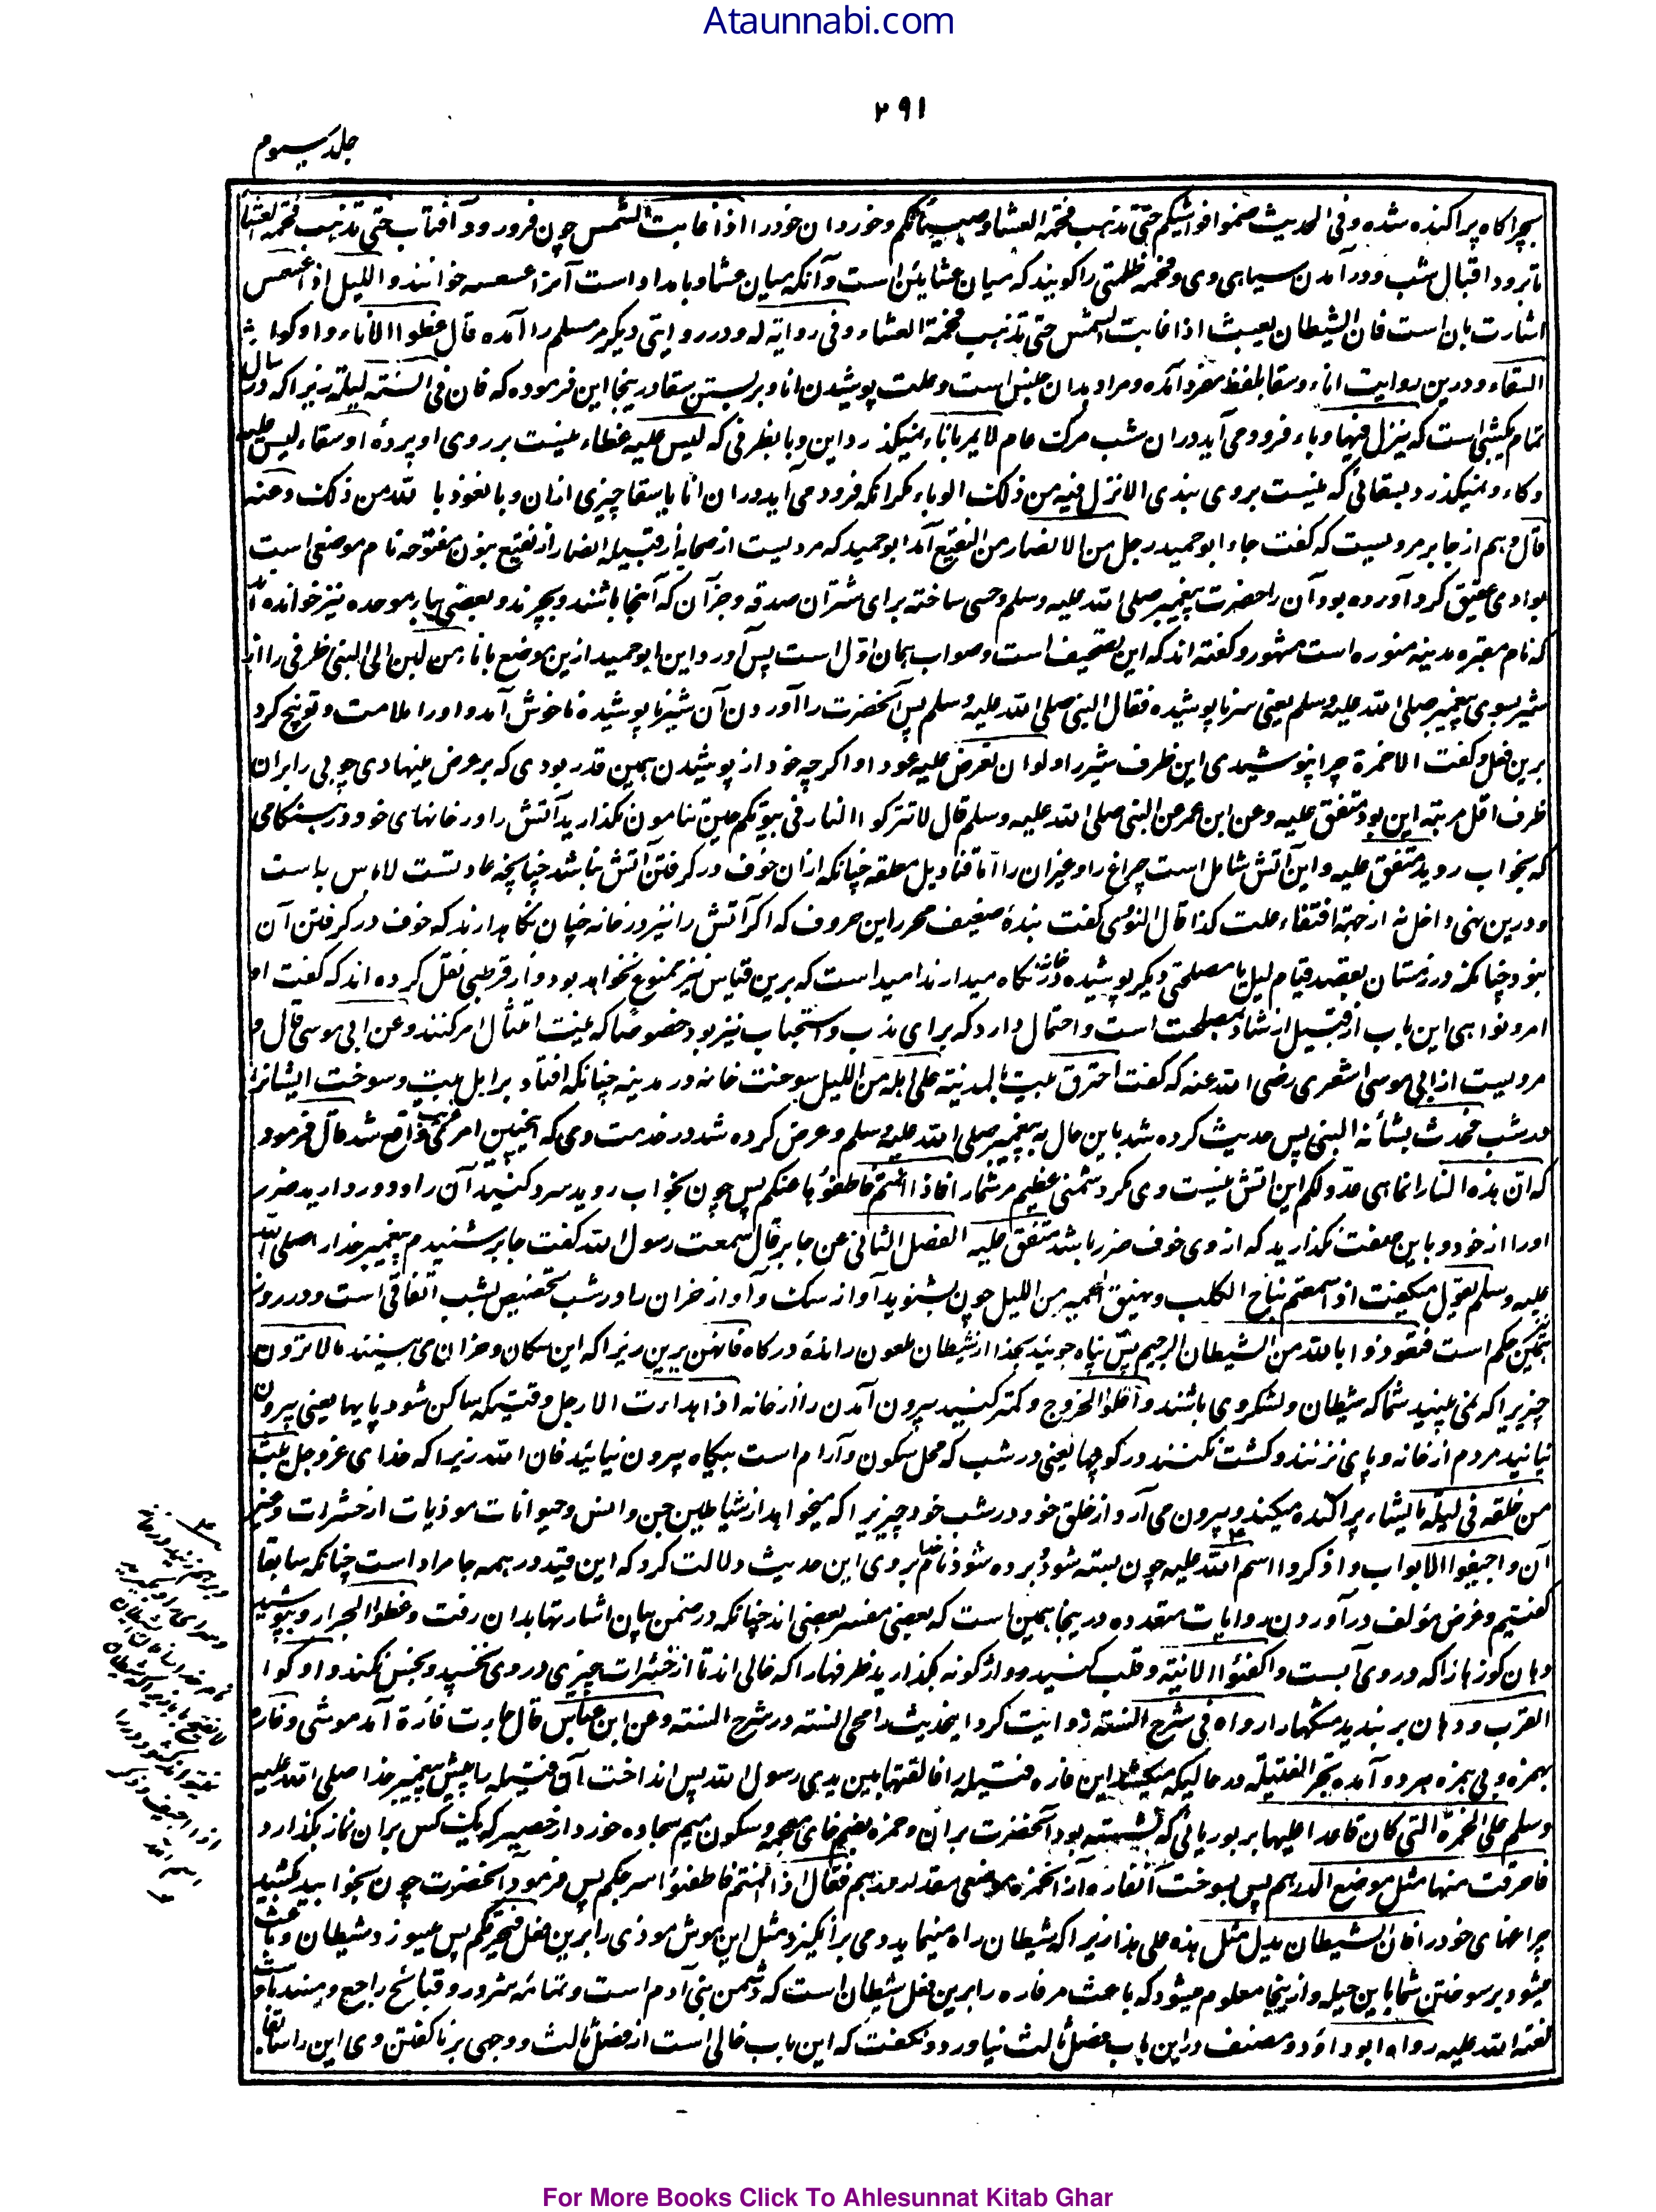 Ataunnabi.com
۲۹۱
جلد سیوم
بچراکاه پراکنده شده وفی الحدیث ضموا فواشیکم حتی تذهب فحمة العشاء وصبیانکم وخوردان خود را اذا غابت الشمس چون فرو رود آفتاب حتی تذهب فحمة العشا
تا برود اقبال شب ودر آمدن سیاهی وی وفحمه ظلمتی را کویند که میان عشایین است وآنکه میان عشا وبامداد است آنرا عسعسه خوانند واللیل اذا عسعس
اشارت بان است فان الشیطان یبعث اذا غابت الشمس حتی تذهب فحمة العشاء وفی روایة له ودر روایتی دیکر مر مسلم را آمده قال غطوا الاناء واوکوا
السقاء ودرین روایت اناء وسقا بلفظ مفرد آمده ومراد بدان جنس است وعلت پوشیدن انا وبربستن سقا درینجا این فرموده که فان فی السنة لیلة زیرا که در سال
تمام یکشبی است که ینزل فیها وباء فرود می آید دران شب مرک عام لا یمر باناء نمیکذرد این وبا بظرفی که لیس علیه غطاء نیست بر روی او پردهٔ او سقاء لیس علیه
وکاء ونمیکذرد بسقائی که نیست بروی بندی الا نزل فیه من ذلک الوباء مکر انکه فرود می آید دران انا یا سقا چیزی ازان وبا نعوذ بالله من ذلک وعنه
قال وهم از جابر مرویست که کفت جاء ابو حمید رجل من الانصار من النقیع آمد ابو حمید که مردیست از صحابه از قبیله انصار از نقیع بنون مفتوحه نام موضعی است
بوادی عقیق کرد آورده بود آن را حضرت پیغمبر صلی الله علیه وسلم وحمی ساخته برای شتران صدقه وجز آن که آنجا باشند وبچرند وبعضی بباء موحده نیز خوانده اند
که نام مقبره مدینه منوره است مشهور وکفته اند که این تصحیف است وصواب همان اول است پس آورد این ابو حمید ازین موضع باناء من لبن الی النبی ظرفی را از
شیر بسوی پیغمبر صلی الله علیه وسلم یعنی سر ناپوشیده فقال النبی صلی الله علیه وسلم پس آنحضرت را آوردن آن شیر ناپوشیده ناخوش آمد واو را ملامت وتوبیخ کرد
برین فعل وکفت الا خمرته چرا نپوشیدی این ظرف شیر را ولو ان تعرض علیه عودا واکرچه خود از پوشیدن همین قدر بودی که بر عرض مینهادی چوبی را بران
ظرف اقل مرتبه این بود متفق علیه وعن ابن عمر عن النبی صلی الله علیه وسلم قال لا تترکوا النار فی بیوتکم حین تنامون نکذارید آتش را در خانهای خود در هنکامی
که بخواب روید متفق علیه واین آتش شامل است چراغ را وغیران را اما قنادیل معلقه چنانکه ازان خوف در کرفتن آتش نباشد چنانچه عادتست لا باس به است
ودرین نهی داخل نه از جهة انتفاء علت کذا قال النووی کفت بندهٔ ضعیف محرر این حروف که اکر آتش را نیز در خانه چنان نکاهدارند که خوف در کرفتن آن
نبود چنانکه در زمستان بقصد قیام لیل یا مصلحتی دیکر پوشیده نکاه میدارند امید است که برین قیاس نیز ممنوع نخواهد بود واز قرطبی نقل کرده اند که کفت
امر ونواهی این باب از قبیل ارشاد بمصلحت است واحتمال دارد که برای ندب واستحباب نیز بود خصوصا که نیت امتثال امر کنند وعن ابی موسی قال
مرویست از ابی موسی اشعری رضی الله عنه که کفت احترق بیت بالمدینة علی اهله من اللیل سوخت خانه در مدینه چنانکه افتاد بر اهل بیت وسوخت ایشانرا
در شب فحدث بشأنه النبی پس حدیث کرده شد باین حال به پیغمبر صلی الله علیه وسلم وعرض کرده شد در خدمت وی که اینچنین امر واقع شد قال فرمود
که ان هذه النار انما هی عدو لکم این آتش نیست وی مکر دشمنی عظیم مر شما را فاذا نمتم فاطفؤها عنکم پس چون بخواب روید سرد کنید آن را ودور دارید ضرر
او را از خود وباین صفت نکذارید که از وی خوف ضرر باشد متفق علیه الفصل الثانی عن جابر قال سمعت رسول الله کفت جابر شنیدم پیغمبر خدا را صلی الله
علیه وسلم یقول میکفت اذا سمعتم نباح الکلب ونهیق الحمیر من اللیل چون بشنوید آواز سک وآواز خران را در شب تخصیص بشب اتفاقی است ودر روز
همین حکم است فتعوذوا بالله من الشیطان الرجیم پس پناه جوئید بخدا از شیطان ملعون راندهٔ درکاه فانهن یرین زیرا که این سکان وخران می بینند ما لا ترون
چیزیرا که نمی بینید شما که شیطان ولشکر وی باشند واقلوا الخروج وکمتر کنید بیرون آمدن را از خانه اذا هدأت الارجل وقتیکه ساکن شود پایها یعنی بیرون
نیایند مردم از خانه وپای نزنند وکشت نکنند در کوچها یعنی در شب که محل سکون وآرام است بیکاه بیرون نیائید فان الله زیرا که خدای عز وجل یبث
من خلقه فی لیلته ما یشاء پراکنده میکند وبیرون می آرد از خلق خود در شب خود چیزیرا که میخواهد از شیاطین جن وانس وحیوانات موذیات از حشرات وغیر
آن واجیفوا الابواب واذکروا اسم الله علیه چون بسته شود وبرده شود نام خدا بروی این حدیث دلالت کرد که این قید در همه جا مراد است چنانکه سابقا
کفتیم وغرض مؤلف در آوردن روایات متعدده درینجا همین است که بعضی مفسر بعضی اند چنانکه در ضمن بیان اشارتها بدان رفت وغطوا الجرار وبپوشید
دهان کوزها را که در وی آبست واکفئوا الآنیة وقلب کنید وواژکونه بکذارید ظرفها را که خالی اند تا از حشرات چیزی در وی نخسپد ونجس نکند واوکوا
القرب ودهان بربندید مشکها را رواه فی شرح السنة روایت کرد اینحدیث را محی السنه در شرح السنة وعن ابن عباس قال جاءت فارة آمد موشی وفاره
بهمزه وبی همزه هر دو آمده تجر الفتیلة در حالیکه میکشد این فاره فتیله را فالقتها بین یدی رسول الله پس انداخت آن فتیله را پیش پیغمبر خدا صلی الله علیه
وسلم علی الخمرة التی کان قاعدا علیها بر بوریائی که نشسته بود آنحضرت بران وخمره بضم خای معجمه وسکون میم سجاده خورد از حصیر که یک کس بران نماز بکذارد
فاحرقت منها مثل موضع الدرهم پس بسوخت آنفاره از انخمره موضعی مقدار درهم فقال اذا نمتم فاطفئوا سرجکم پس فرمود آنحضرت چون بخوابید بکشید
چراغهای خود را فان الشیطان یدل مثل هذه علی هذا زیرا که شیطان راه مینماید ومی برانکیزد مثل این موش موذی را برین فعل فیحرقکم پس میسوزد شیطان وباعث
میشود بر سوختن شما باین حیله واز ینجا معلوم میشود که باعث مر فاره را برین فعل شیطان است که دشمن بنی آدم است وتمامه شرور وقبائح راجع ومستند باوست
لعنة الله علیه رواه ابو داؤد ومصنف دراین باب فصل ثالث نیاورد ونکفت که این باب خالی است از فصل ثالث ووجهی بر ناکفتن وی این را سابقا
For More Books Click To Ahlesunnat Kitab Ghar